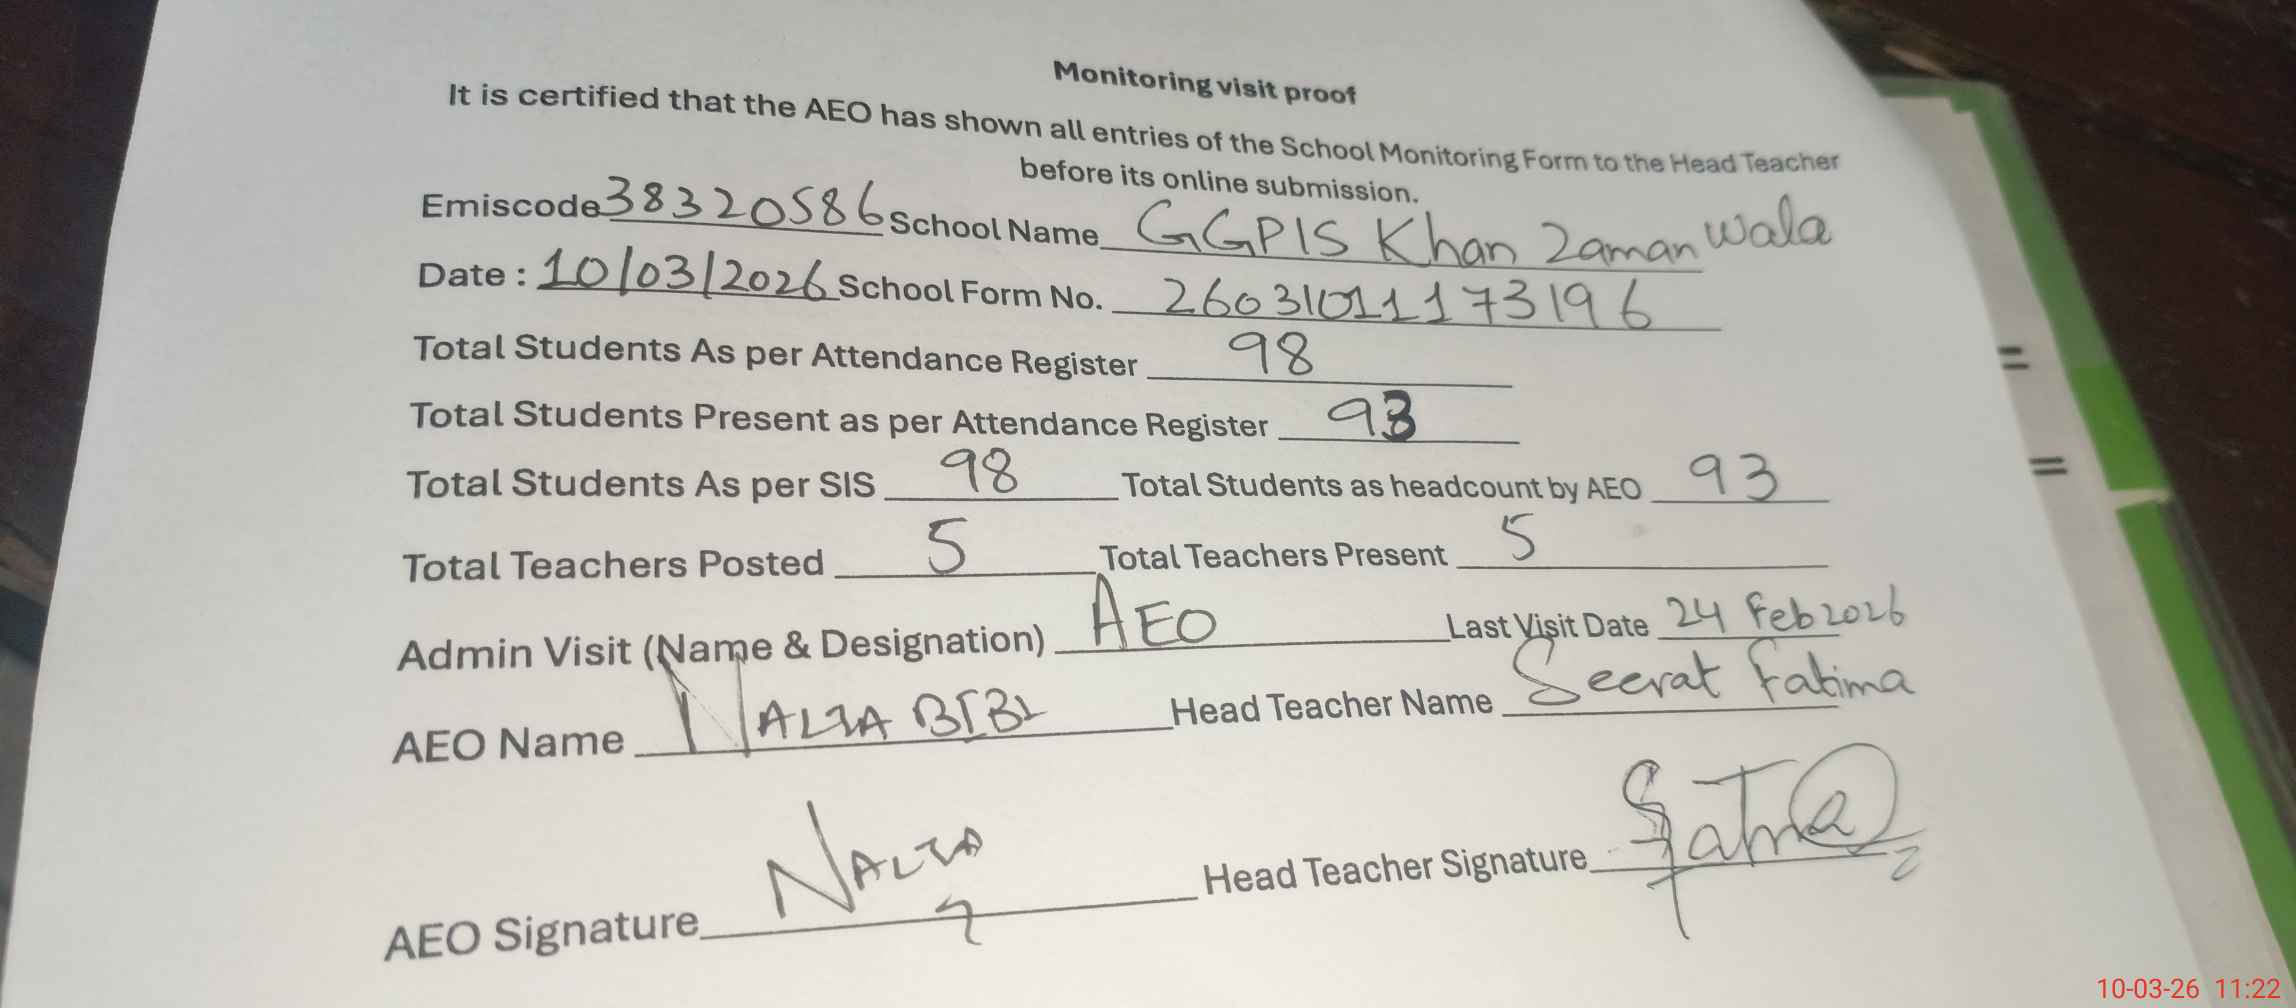 Monitoring visit proof
It is certified that the AEO has shown all entries of the School Monitoring Form to the Head Teacher
before its online submission.
Emiscode 38320586 School Name GGPIS Khan Zaman Wala
Date : 10/03/2026 School Form No. 26031011173196
Total Students As per Attendance Register 98
Total Students Present as per Attendance Register 93
Total Students As per SIS 98 Total Students as headcount by AEO 93
Total Teachers Posted 5 Total Teachers Present 5
Admin Visit (Name & Designation) AEO Last Visit Date 24 Feb 2026
AEO Name NALIA BIBI Head Teacher Name Seerat Fatima
AEO Signature NALIA Head Teacher Signature
10-03-26 11:22